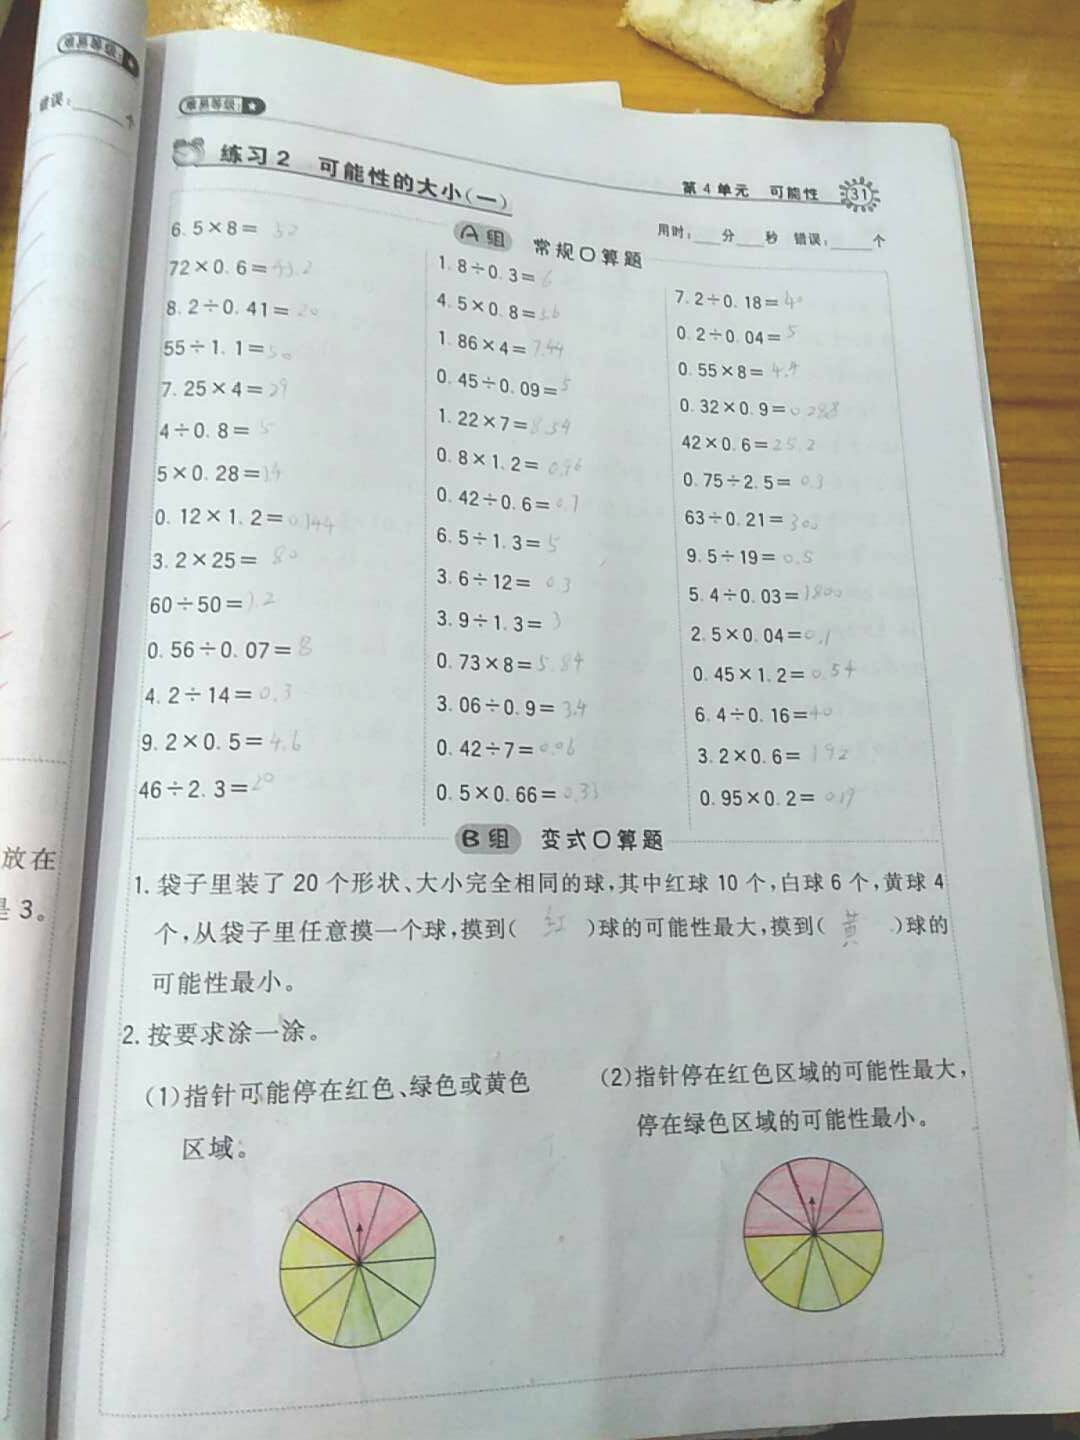 难易等级:★
错误:____个
放在
是3。
难易等级:★
练习2 可能性的大小(一)
第4单元 可能性 31
用时:____分____秒 错误:____个
A组 常规口算题
6.5×8= 52
72×0.6=43.2
8.2÷0.41=20
55÷1.1=50
7.25×4=29
4÷0.8=5
5×0.28=14
0.12×1.2=0.144
3.2×25=80
60÷50=1.2
0.56÷0.07=8
4.2÷14=0.3
9.2×0.5=4.6
46÷2.3=20
1.8÷0.3=6
4.5×0.8=3.6
1.86×4=7.44
0.45÷0.09=5
1.22×7=8.54
0.8×1.2=0.96
0.42÷0.6=0.7
6.5÷1.3=5
3.6÷12=0.3
3.9÷1.3=3
0.73×8=5.84
3.06÷0.9=3.4
0.42÷7=0.06
0.5×0.66=0.33
7.2÷0.18=40
0.2÷0.04=5
0.55×8=4.4
0.32×0.9=0.288
42×0.6=25.2
0.75÷2.5=0.3
63÷0.21=300
9.5÷19=0.5
5.4÷0.03=1800
2.5×0.04=0.1
0.45×1.2=0.54
6.4÷0.16=40
3.2×0.6=192
0.95×0.2=0.19
B组 变式口算题
1.袋子里装了20个形状、大小完全相同的球,其中红球10个,白球6个,黄球4
个,从袋子里任意摸一个球,摸到( 红 )球的可能性最大,摸到( 黄 )球的
可能性最小。
2.按要求涂一涂。
(1)指针可能停在红色、绿色或黄色
区域。
(2)指针停在红色区域的可能性最大,
停在绿色区域的可能性最小。